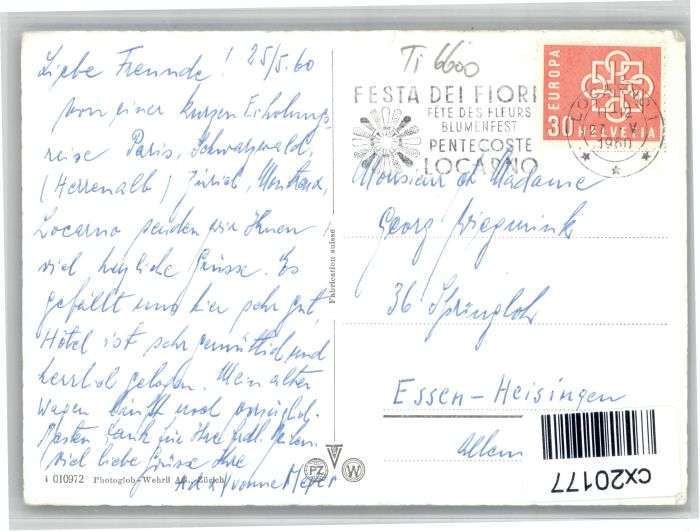 Liebe Freunde! 25/5.60
von einer kurzen Erholungs-
reise Paris, Schwarzwald,
(Herrenalb) Zürich, Montreux,
Locarno senden wir Ihnen
viel herzliche Grüsse. Es
gefällt uns hier sehr gut,
Hôtel ist sehr gemütlich und
herrlich gelegen. Mein alter
Wagen läuft noch vorzügl.
Besten Dank für Ihre frdl. Zeilen.
Viel liebe Grüsse Ihre
Yvonne Meyer
1 010972 Photoglob-Wehrli AG., Zürich
PZ W
Fabrication suisse
Ti 6600
FESTA DEI FIORI
FÊTE DES FLEURS
BLUMENFEST
PENTECOSTE
LOCARNO
EUROPA
30 HELVETIA
LOCARNO 1
1960
Monsieur et Madame
Georg Wiegmink
36 Springloh
Essen-Heisingen
Allem
cx20177